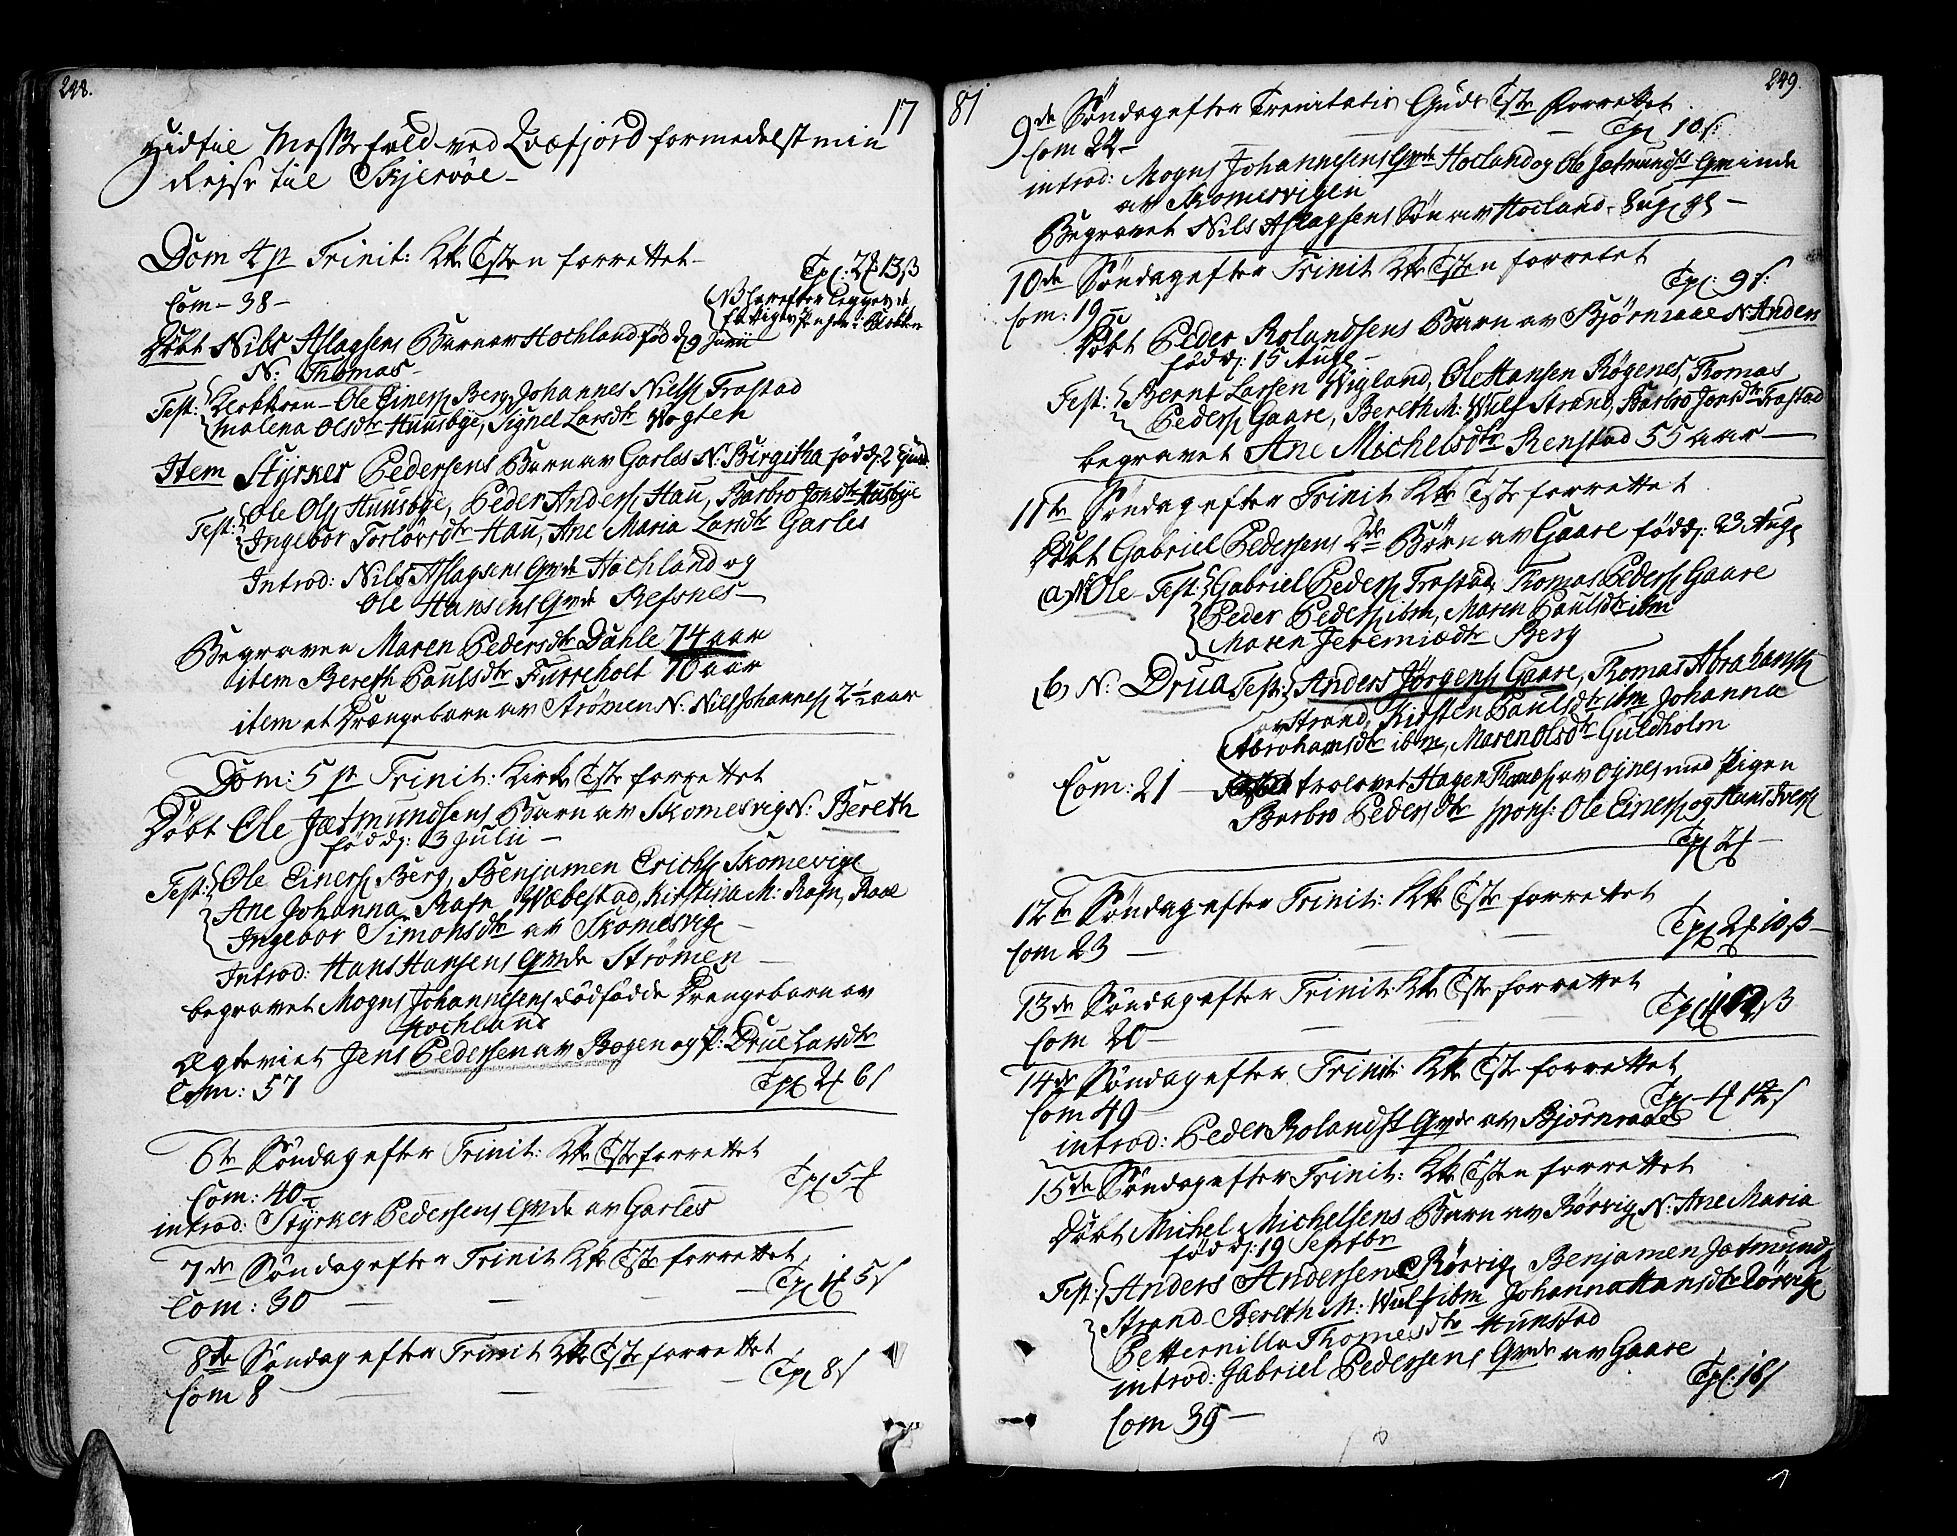 248.
17
Hidtil Messefald ved Qvæfjord formedelst min
Rejse til Skjervöe
Dom 4 p Trinit: Kke Tsten forrettet
Com - 38 -
Döbt Nils Aslagsens Barn av Hochland föd d: 9 Junii
N: Thomas
Test: Klokkeren - Ole Einers Berg, Johannes Niels Trastad
Malena Olsdtr Huusbÿe, Signel Larsdtr Vogten
Item Stÿrker Pedersens Barn av Garles N: Birgitha född: 2
Test: Ole Ols Huusbÿe, Peder Anders Hau, Barbro Jonsdtr Husbÿe
Ingebor Torlövsdtr Hau, Ane Maria Larsdtr Garles
Introd: Nils Aslagsens Qvde Hochland og
Ole Hansens Qvde Refsnes
Begraven Maren Pedersdtr Dahle 74 aar
item Bereth Paulsdtr Furreholt 70 aar
item et Drængebarn av Strömen N: Nils Johannes 2½ aar
Dom: 5 p Trinit: Kirke Tste forrettet
Döbt Ole Jætmundsens Barn av Skomesvig N: Bereth
född: 3 Julii
Test: Ole Einers Berg, Benjamen Erichs Skomevige
Ane Johanna Rafn Wæbestad, Kirstina M: Rafn, Raae
Ingebor Simonsdtr av Skomesvig
Introd: Hans Hansens Qvde Strömen
begravet Mogns Johannesens dödfödde Drengebarn av
Hochland
Ægteviet Jens Pedersen av Bogen og P: Drue Larsdtr
Com: 57
6te Söndag efter Trinit: Kke Tste forrettet
Com: 40
introd: Stÿrker Pedersens Qvde av Garles
7de Söndag efter Trinit Kke Tste forrettet
Com: 30
8de Söndag efter Trinit Kke Tste forrettet
Com 8
81
249.
9de Söndag efter Trenitatis Guds Tste forrettet
Com 22
introd: Mogns Johannesens Qvde Hocland og Ole Jetmunds Qvinde
av Skomesvigen
Begravet Nils Aslagsens Sön av Hocland
10de Söndag efter Trinit Kke Tsten forrettet
Com: 19
Döbt Peder Rolandsens Barn av Björnraae N: Anders
född: 15 Aug
Test: Bernt Larsen Wigland, Ole Hansen Rögenes, Thomas
Peders Gaare, Bereth M: Wulf Strand, Barbro Jonsdtr Trastad
begravet Ane Michelsdtr Renstad 55 aar
11te Söndag efter Trinit Kke Tste forrettet
Döbt Gabriel Pedersens 2de Börn av Gaare född: 23 Aug
(a) N: Ole Test: Gabriel Peders Trastad, Thomas Peders Gaare
Peder Peders ibm, Maren Paulsdtr ibm
Maren Jeremiædtr Berg
(b) N: Drua Test: Anders Jörgens Gaare, Thomas Abrahams
av Strand, Kirsten Paulsdtr ibm Johanna
Abrahamsdtr ibm, Maren Olsdtr Guldholm
Com: 21 - trolovet Hagen Thomes av Öynes med Pigen
Barbro Pedersdtr spons: Ole Einers og Hans Ivers
12te Söndag efter Trinit: Kke Tste forrettet
Com 23
13de Söndag efter Trinit: Kke Tste forrettet
Com 20
14de Söndag efter Trinit: Kke Tste forrettet
Com 49
introd: Peder Rolands Qvde av Bjørnraae
15de Söndag efter Trinit: Kke Tsten forrettet
Döbt Michel Michelsens Barn av Rörvig N: Ane Maria
född: 19 Septbr
Test: Anders Andersen Rörvig Benjamen Jatmunds
Strand Bereth M: Wulf ibm Johanna Hansdtr Rörvig
Petternilla Thomesdtr Hunstad
introd: Gabriel Pedersens Qvde av Gaare
Com 39